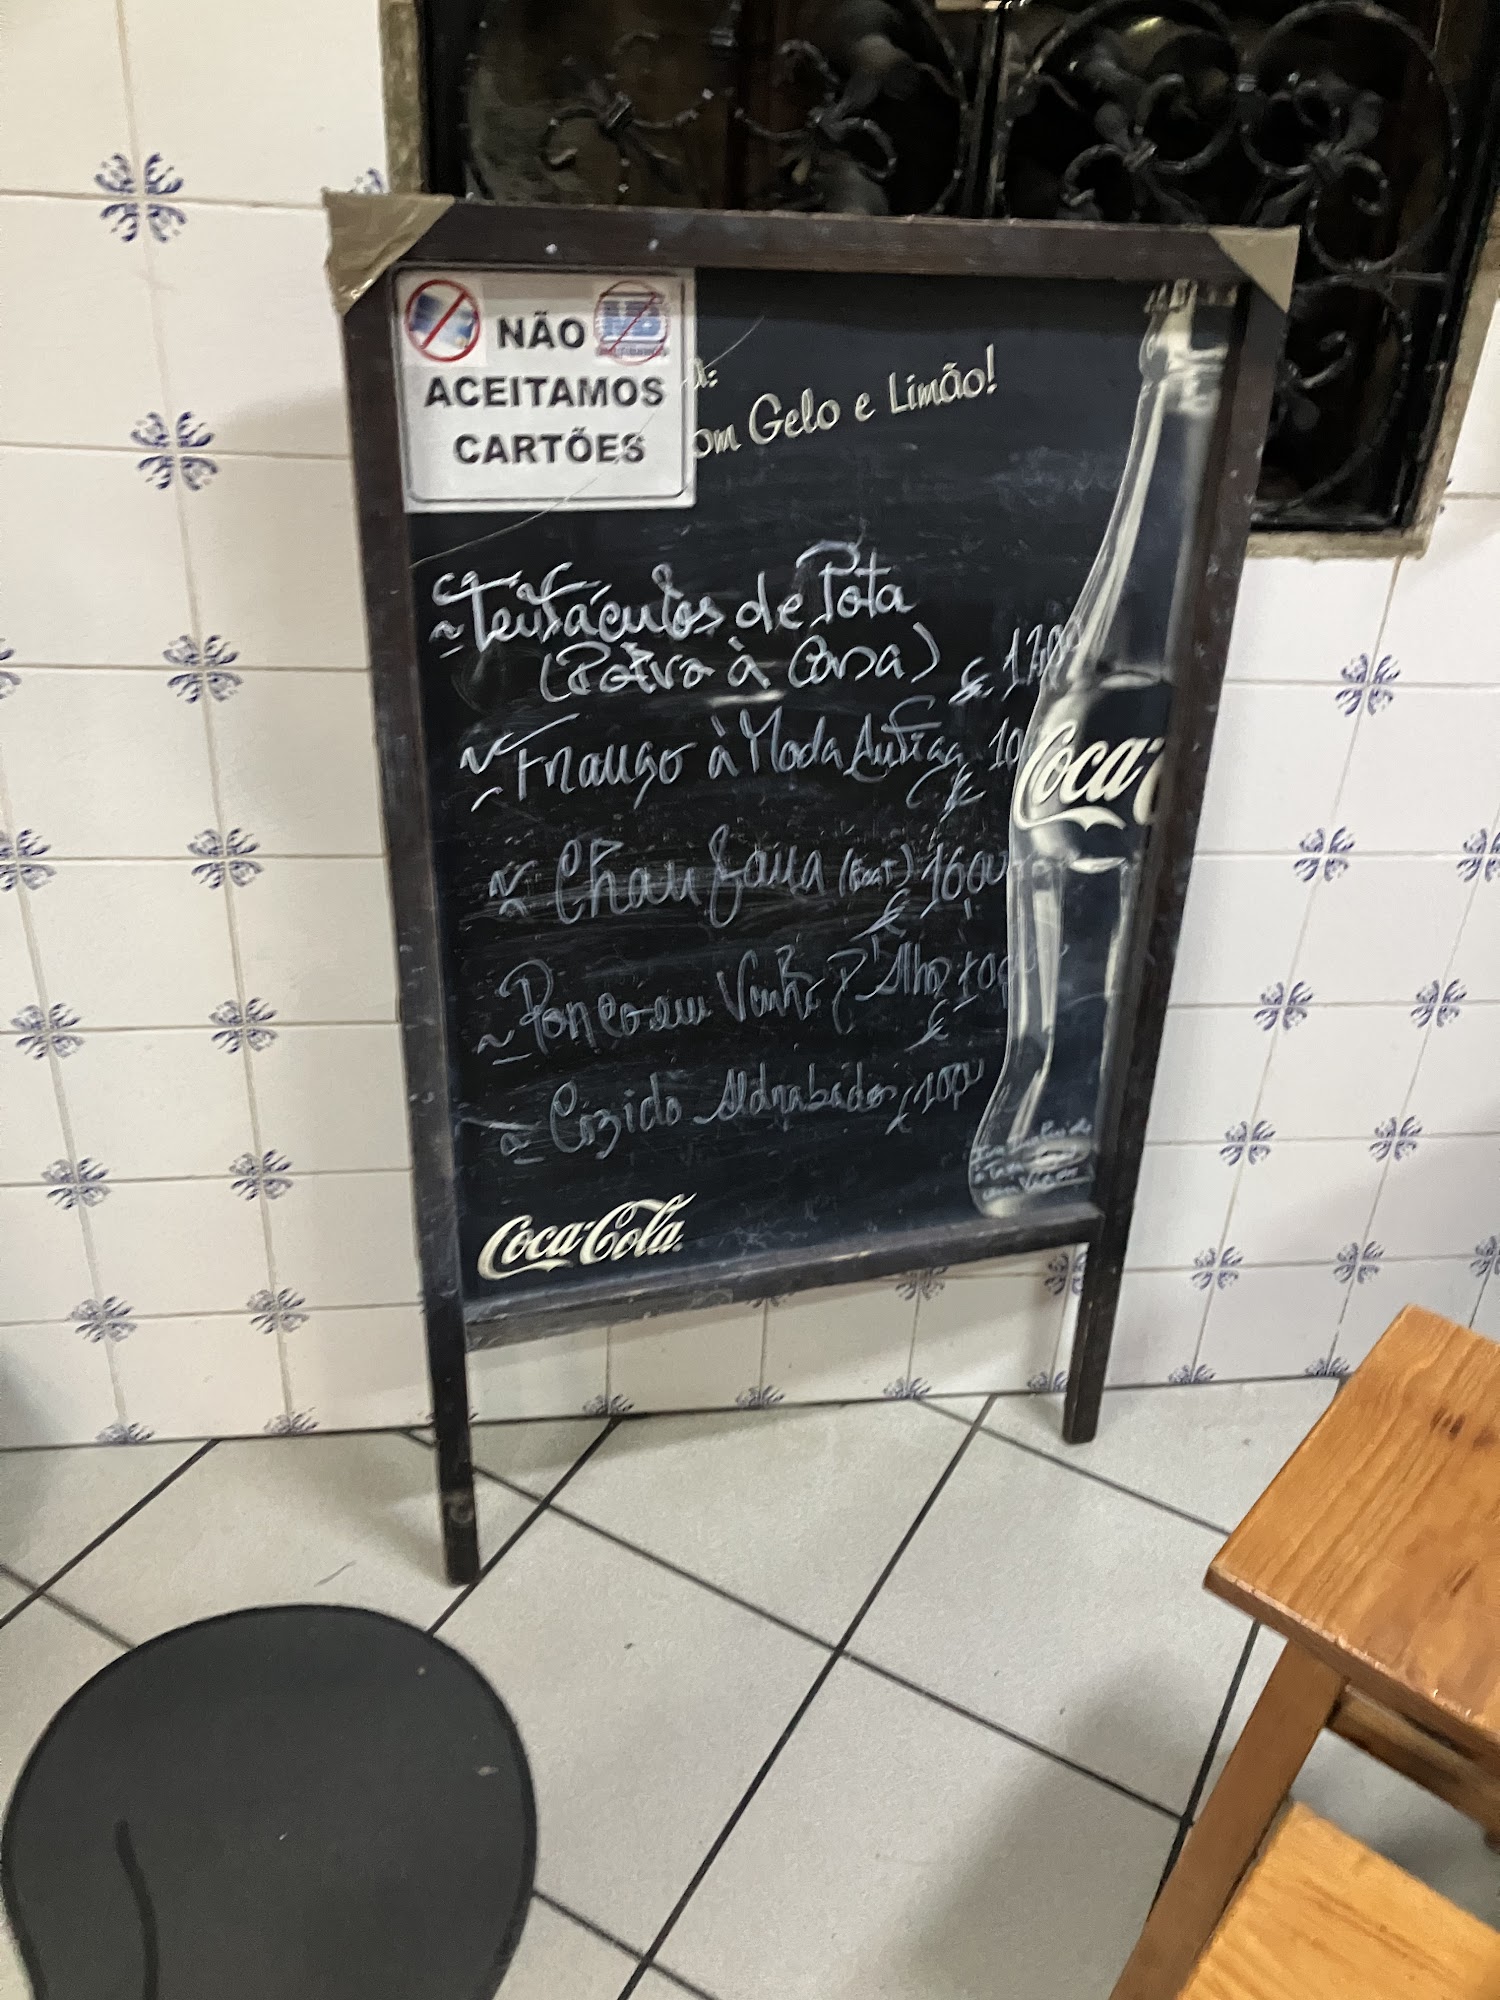 NÃO
ACEITAMOS
CARTÕES
com Gelo e Limão!
Tentáculos de Pota
(Polvo à Casa) €
Frango à Moda Antiga 10
€
Chanfana 16,00
€
Porco em Vinho d'Alho 10,00
€
Cozido Aldrabado € 10,00
Coca-C
Coca-Cola